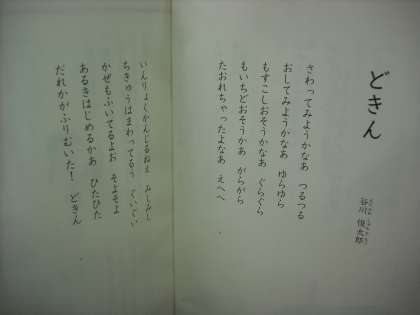 どきん
谷川 俊太郎
さわってみようかなあ つるつる
おしてみようかなあ ゆらゆら
もすこしおそうかなあ ぐらぐら
もいちどおそうかあ がらがら
たおれちゃったよなあ えへへ
いんりょくかんじるねえ みしみし
ちきゅうはまわってるう ぐいぐい
かぜもふいてるよお そよそよ
あるきはじめるかあ ひたひた
だれかがふりむいた! どきん